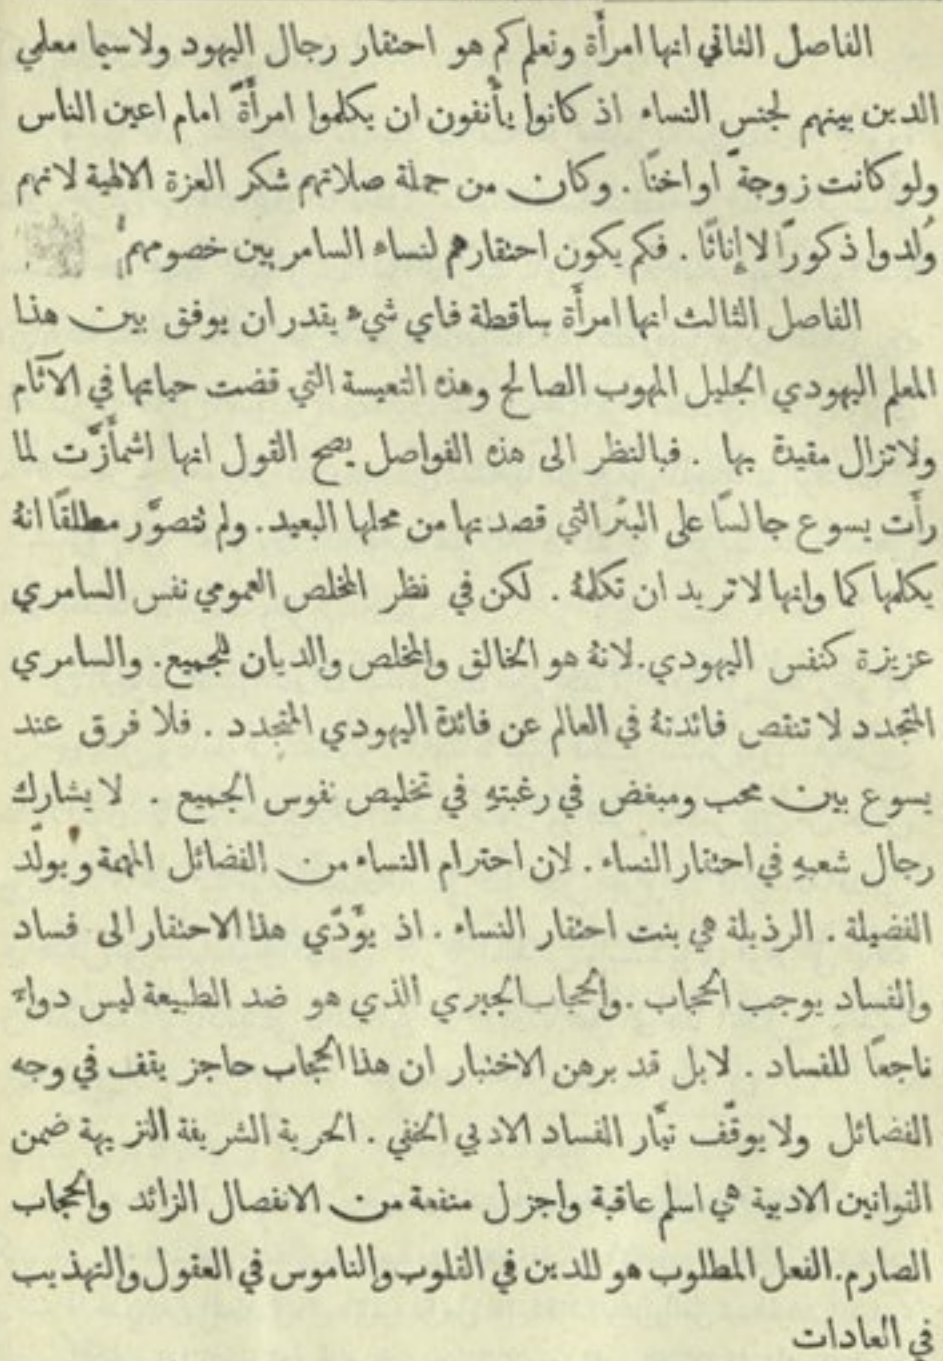 الفاصل الثاني انها امرأة ونعلم كم هو احتقار رجال اليهود ولاسيما معلمي
الدين بينهم لجنس النساء اذ كانوا يأنفون ان يكلموا امرأةً امام اعين الناس
ولو كانت زوجةً او اختًا . وكان من جملة صلاتهم شكر العزة الالهية لانهم
وُلدوا ذكورًا لا إناثًا . فكم يكون احتقارهم لنساء السامريين خصومهم
الفاصل الثالث انها امرأة ساقطة فاي شيء يقدر ان يوفق بين هذا
المعلم اليهودي الجليل المهوب الصالح وهذه التعيسة التي قضت حياتها في الآثام
ولا تزال مقيدة بها . فبالنظر الى هذه الفواصل يصح القول انها اشمأزَّت لما
رأَت يسوع جالسًا على البئر التي قصدتها من محلها البعيد. ولم تتصوَّر مطلقًا انهُ
يكلمها كما وانها لا تريد ان تكلمهُ . لكن في نظر المخلص العمومي نفس السامري
عزيزة كنفس اليهودي. لانهُ هو الخالق والمخلص والديان للجميع. والسامري
المتجدد لا تنقص فائدتهُ في العالم عن فائدة اليهودي المتجدد . فلا فرق عند
يسوع بين محب ومبغض في رغبتهِ في تخليص نفوس الجميع . لا يشارك
رجال شعبهِ في احتقار النساء . لان احترام النساء من الفضائل المهمة ويولّد
الفضيلة . الرذيلة هي بنت احتقار النساء . اذ يؤَدّي هذا الاحتقار الى فساد
والفساد يوجب الحجاب . والحجاب الجبري الذي هو ضد الطبيعة ليس دواءً
ناجعًا للفساد . لا بل قد برهن الاختبار ان هذا الحجاب حاجز يقف في وجه
الفضائل ولا يوقّف تيَّار الفساد الادبي الخفي . الحرية الشريفة النزيهة ضمن
القوانين الادبية هي اسلم عاقبة واجزل منفعة من الانفصال الزائد والحجاب
الصارم. الفعل المطلوب هو للدين في القلوب والناموس في العقول والتهذيب
في العادات